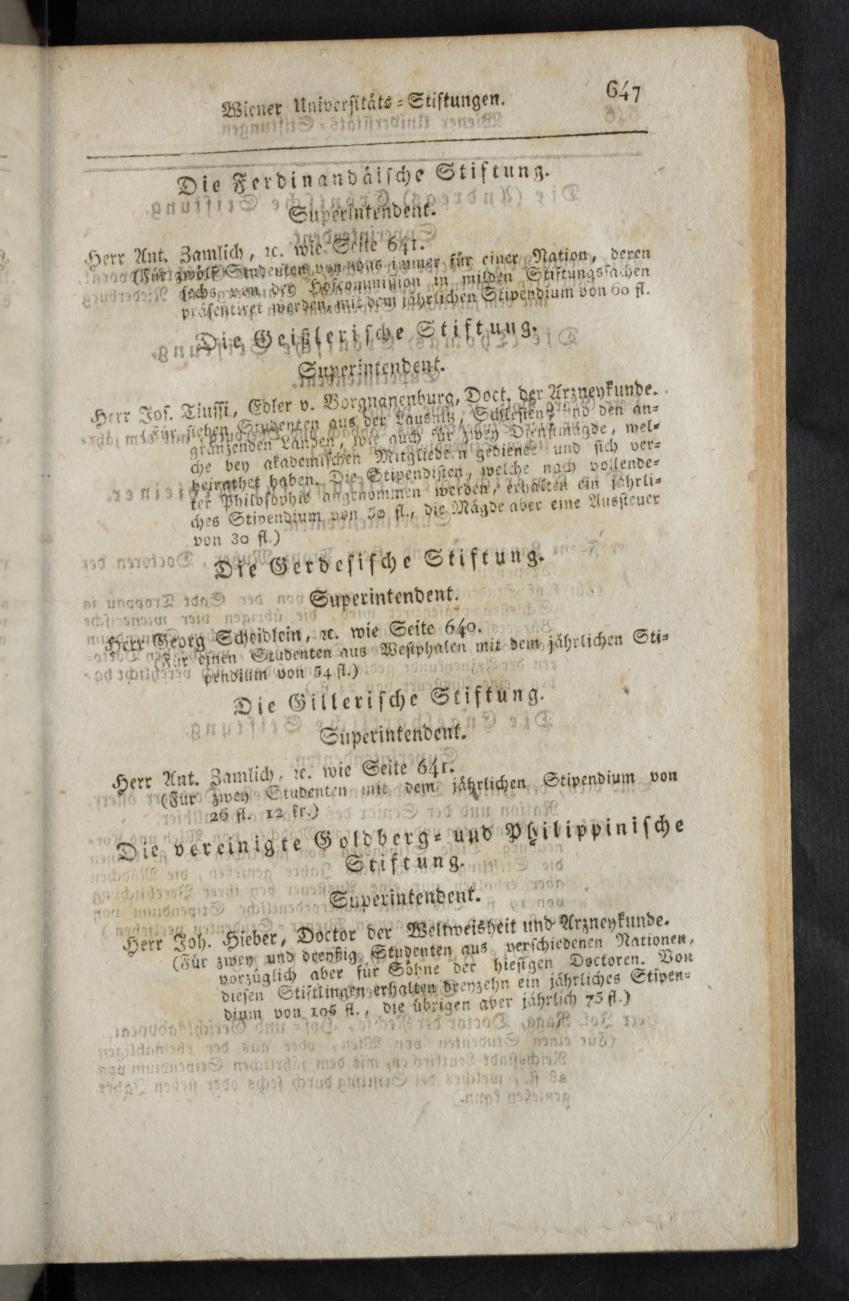 Wiener Universitäts-Stiftungen. 647
Die Ferdinandäische Stiftung.
Superintendent.
Herr Ant. Zamlich, ꝛc. wie Seite 641.
(Für zwölf Studenten von was immer für einer Nation, deren
sechs von der Hofcommission in milden Stiftungssachen
präsentiret werden, mit dem jährlichen Stipendium von 60 fl.
Die Geißlerische Stiftung.
Superintendent.
Herr Jos. Tiussi, Edler v. Borgnanenburg, Doct. der Arzneykunde.
Für sieben Studenten aus der Lausnitz, Schlesien, und den an-
gränzenden Landen, wie auch für zwey Dienstmägde, wel-
che bey akademischen Mitgliedern gedienet und sich ver-
heirathet haben. Die Stipendisten, welche nach vollende-
ter Philosophie angenommen werden, erhalten ein jährli-
ches Stipendium von 50 fl., die Mägde aber eine Aussteuer
von 30 fl.)
Die Gerdesische Stiftung.
Superintendent.
Herr Georg Scheidlein, ꝛc. wie Seite 640.
(Für einen Studenten aus Westphalen mit dem jährlichen Sti-
pendium von 54 fl.)
Die Gillerische Stiftung.
Superintendent.
Herr Ant. Zamlich, ꝛc. wie Seite 641.
(Für zwey Studenten mit dem jährlichen Stipendium von
26 fl. 12 kr.)
Die vereinigte Goldberg- und Philippinische
Stiftung.
Superintendent.
Herr Joh. Hieber, Doctor der Weltweisheit und Arzneykunde.
(Für zwey und dreyßig Studenten aus verschiedenen Nationen,
vorzüglich aber für Söhne der hiesigen Doctoren. Von
diesen Stiftlingen erhalten dreyzehn ein jährliches Stipen-
dium von 105 fl., die übrigen aber jährlich 75 fl.)